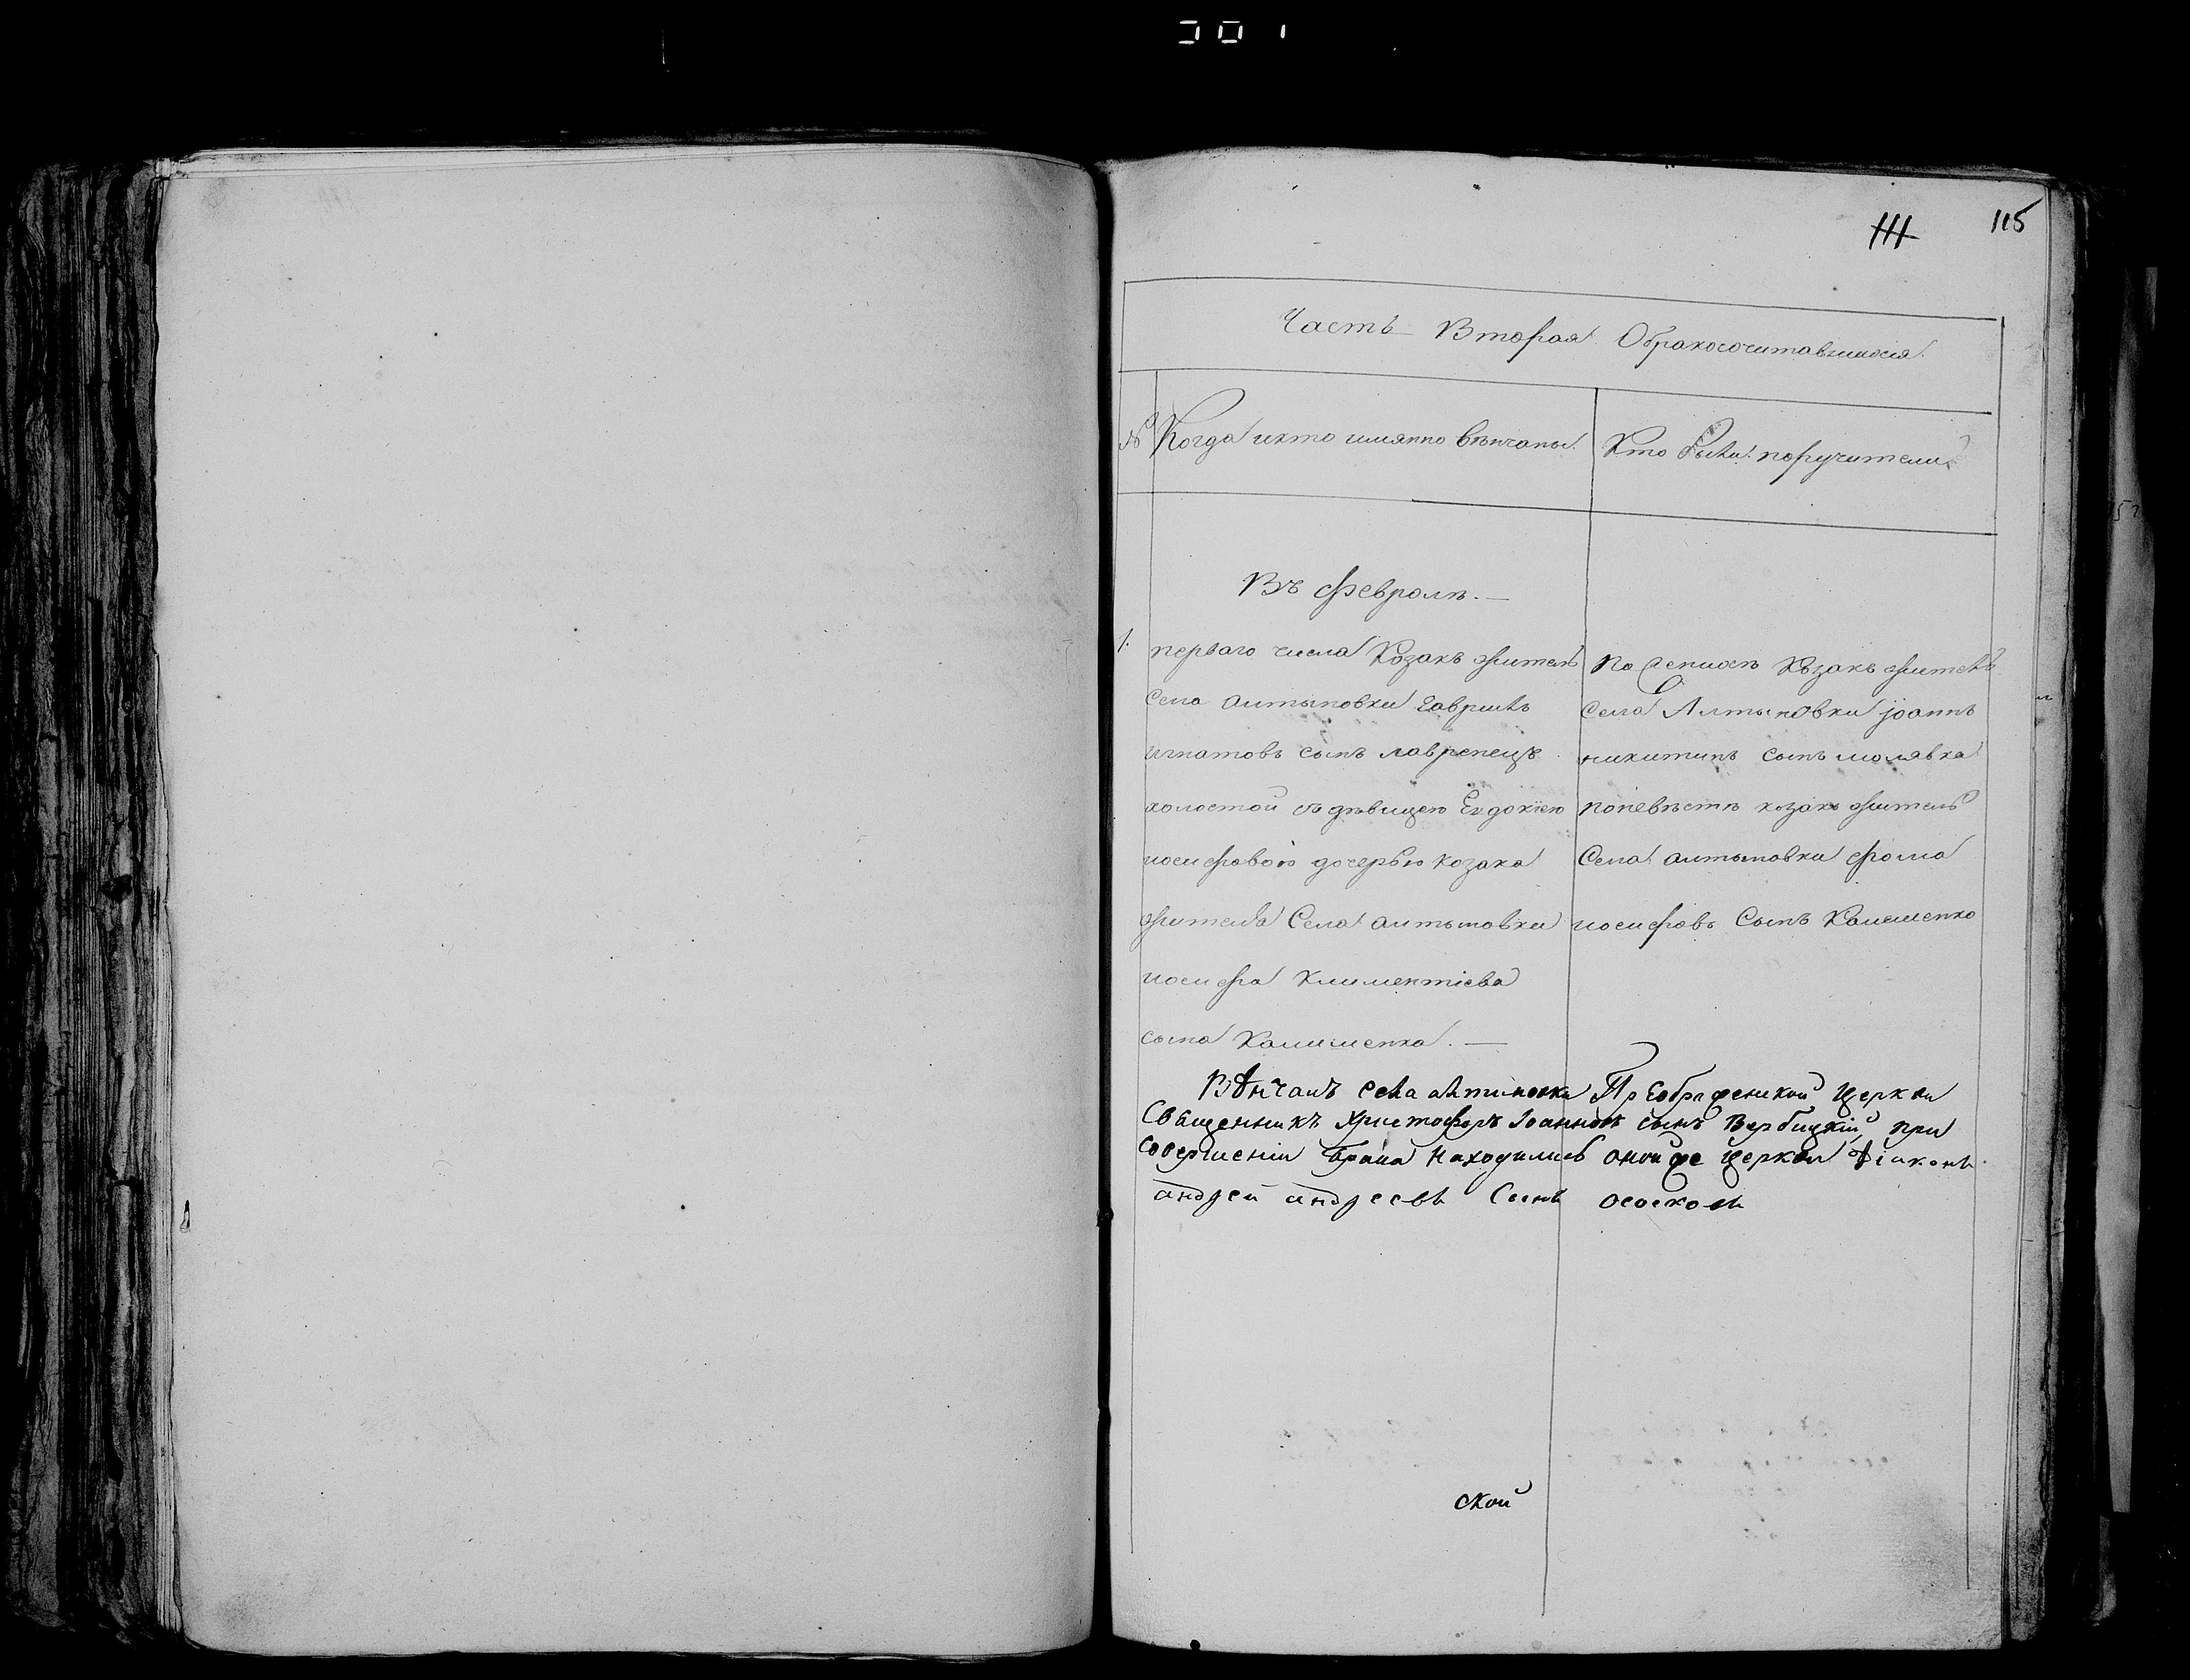 301
111 115
Часть Вторая Обракосочитавшихся.
№ Когда икто имянно вѣнчаны. Кто были поручители
Въ Февролѣ. —
1. перваго числа Козакъ житель
села алтыновки Гавриилъ
игнатовъ сынъ лавренецъ
холостой съ дѣвицею Евдокіею
иосифовою дочерью козака
жителя Села алтыновки
иосифа Климентіева
сына Калишенка. —
По женихѣ Козакъ житель
Села Алтыновки јоаннъ
никитинъ сынъ молявка
поневѣстѣ козакъ житель
Села алтыновки фома
иосифовъ Сынъ Калешенко
Вѣнчалъ села алтиновки Преображенкой церкви
Священникъ Христофоръ Іоанновъ сынъ Вербицкій, при
совершеніи брака находились оной же церкви діаконъ
андрей андреевъ Синъ
ской